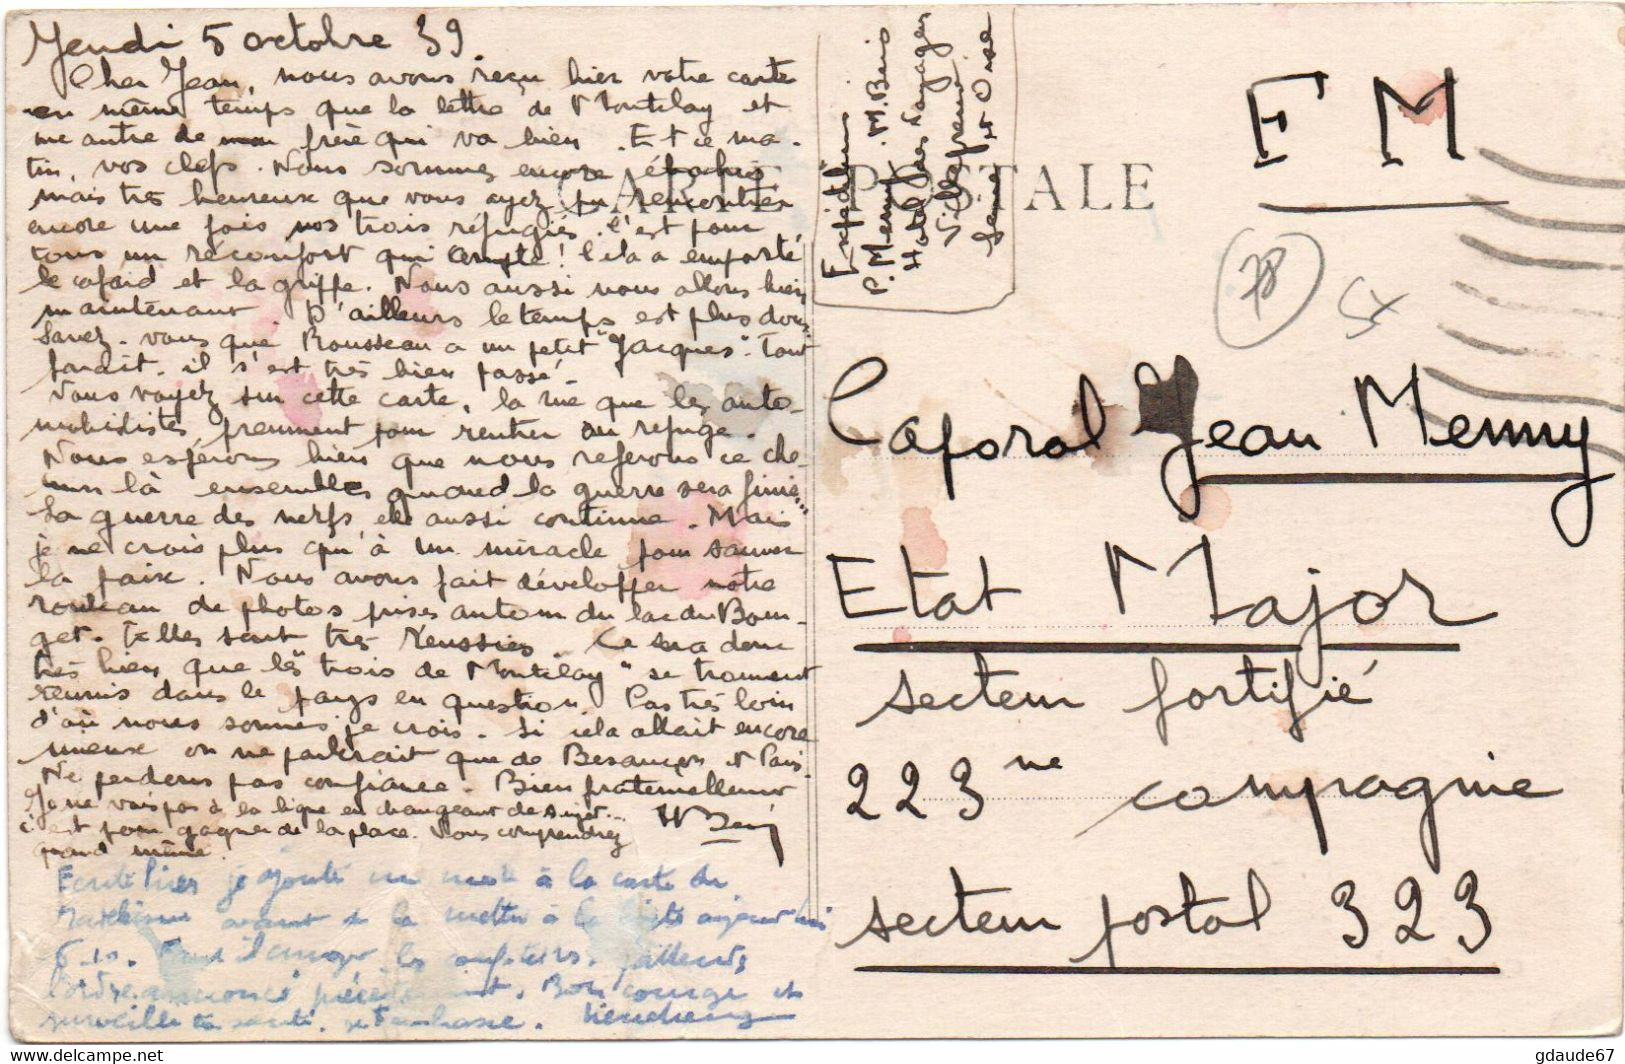 Jeudi 5 octobre 39.
Cher Jean, nous avons reçu hier votre carte
en même temps que la lettre de Montclay et
une autre de mon frère qui va bien. Et ce ma-
tin, vos clefs. Nous sommes encore ébahis
mais très heureux que vous ayez pu rencontrer
encore une fois nos trois réfugiés. C'est pour
tous un réconfort qui compte! Cela a emporté
le cafard et la grippe. Nous aussi nous allons bien
maintenant. D'ailleurs le temps est plus doux.
Savez-vous que Rousseau a un petit "Jacques". Tout
parait-il s'est très bien passé.
Vous voyez sur cette carte, la rue que les auto-
mobilistes prennent pour rentrer au refuge.
Nous espérons bien que nous referons ce che-
min là ensemble quand la guerre sera finie...
La guerre des nerfs elle aussi continue. Mais
je ne crois plus qu'à un miracle pour sauver
la paix. Nous avons fait développer notre
rouleau de photos prises autour du lac du Bour-
get. Elles sont très réussies. Ce sera donc
très bien que les "trois de Montclay" se trouvent
réunis dans le pays en question. Pas très loin
d'où nous sommes je crois. Si cela allait encore
mieux on ne parlerait que de Besançon et Paris.
Ne perdons pas confiance. Bien fraternellement
Je ne vais pas à la ligne en changeant de sujet...
c'est pour gagner de la place. Vous comprendrez
quand même.
je ajoute un mot à la carte de
avant de la mettre à la aujourd'hui
6.10. les
précédemment. Bon courage et
surveille ta santé. je t'embrasse.
CARTE POSTALE
Expéditeur
P. Menny. M. Bénis
Hotel des Voyages
Villepreux
Seine et Oise
F M
78
SX
Caporal Jean Menny
Etat Major
secteur fortifié
223 me compagnie
secteur postal 323
gdaude67